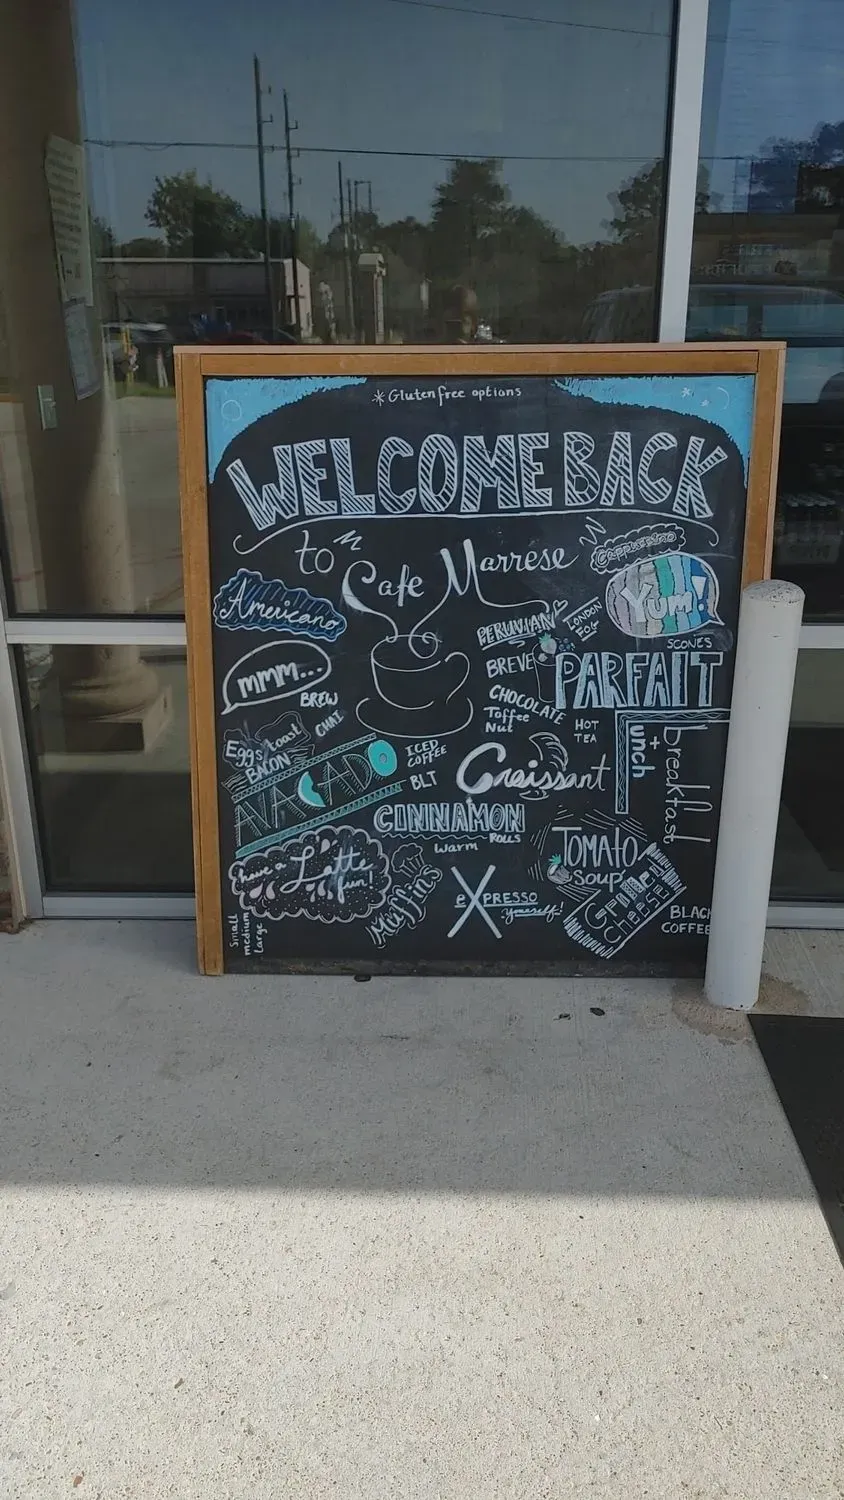 *Gluten free options
WELCOME BACK
to Cafe Marrese
Cappuccino
Americano
YUM!
PERUVIAN
LONDON
FOG
SCONES
mmm...
BREW
CHAI
BREVE
PARFAIT
CHOCOLATE
Toffee
Nut
HOT
TEA
Eggs toast
BACON
AVACADO
ICED
COFFEE
BLT
Croissant
Lunch
+
breakfast
CINNAMON
ROLLS
warm
TOMATO
SOUP
GRILLED
CHEESE
have a Latte
fun!
Muffins
eXPRESSO
yourself!
BLACK
COFFEE
Small
medium
large